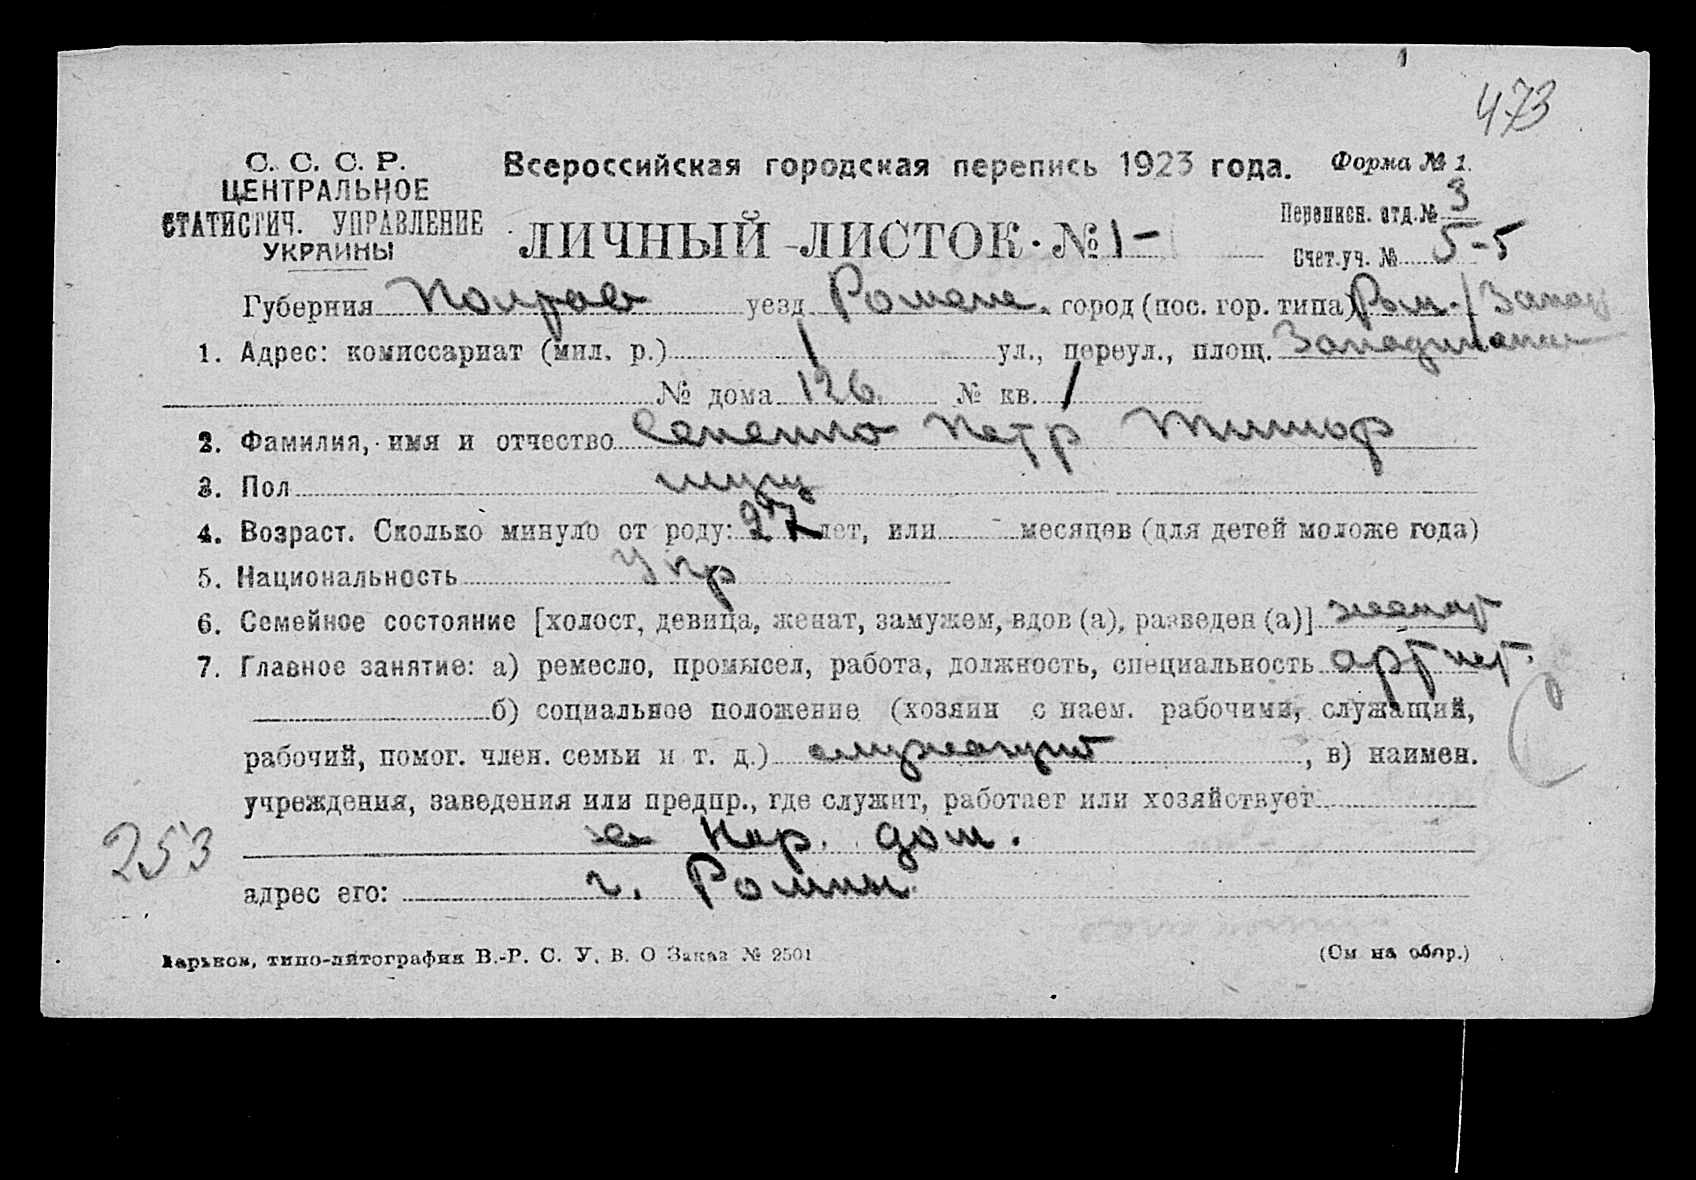 473
С. С. С. Р.
ЦЕНТРАЛЬНОЕ
СТАТИСТИЧ. УПРАВЛЕНИЕ
УКРАИНЫ
Всероссийская городская перепись 1923 года.
Форма № 1.
ЛИЧНЫЙ ЛИСТОК № 1
Переписн. отд. № 3
Счет. уч. № 5-5
Губерния Полтав уезд Ромен. город (пос. гор. типа) Ром.
1. Адрес: комиссариат (мил. р.) 1 ул., переул., площ.
№ дома 126 № кв. 1
2. Фамилия, имя и отчество Петр Тимоф
3. Пол муж
4. Возраст. Сколько минуло от роду: 27 лет, или - месяцев (для детей моложе года)
5. Национальность Укр
6. Семейное состояние [холост, девица, женат, замужем, вдов (а), разведен (а)] женат
7. Главное занятие: а) ремесло, промысел, работа, должность, специальность артист.
б) социальное положение (хозяин с наем. рабочими, служащий,
рабочий, помог. член. семьи и т. д.) служащий, в) наимен.
учреждения, заведения или предпр., где служит, работает или хозяйствует
253
Нар. дом.
адрес его: г. Ромны.
Харьков, типо-литография В.-Р. С. У. В. О Заказ № 2501
(См на обор.)